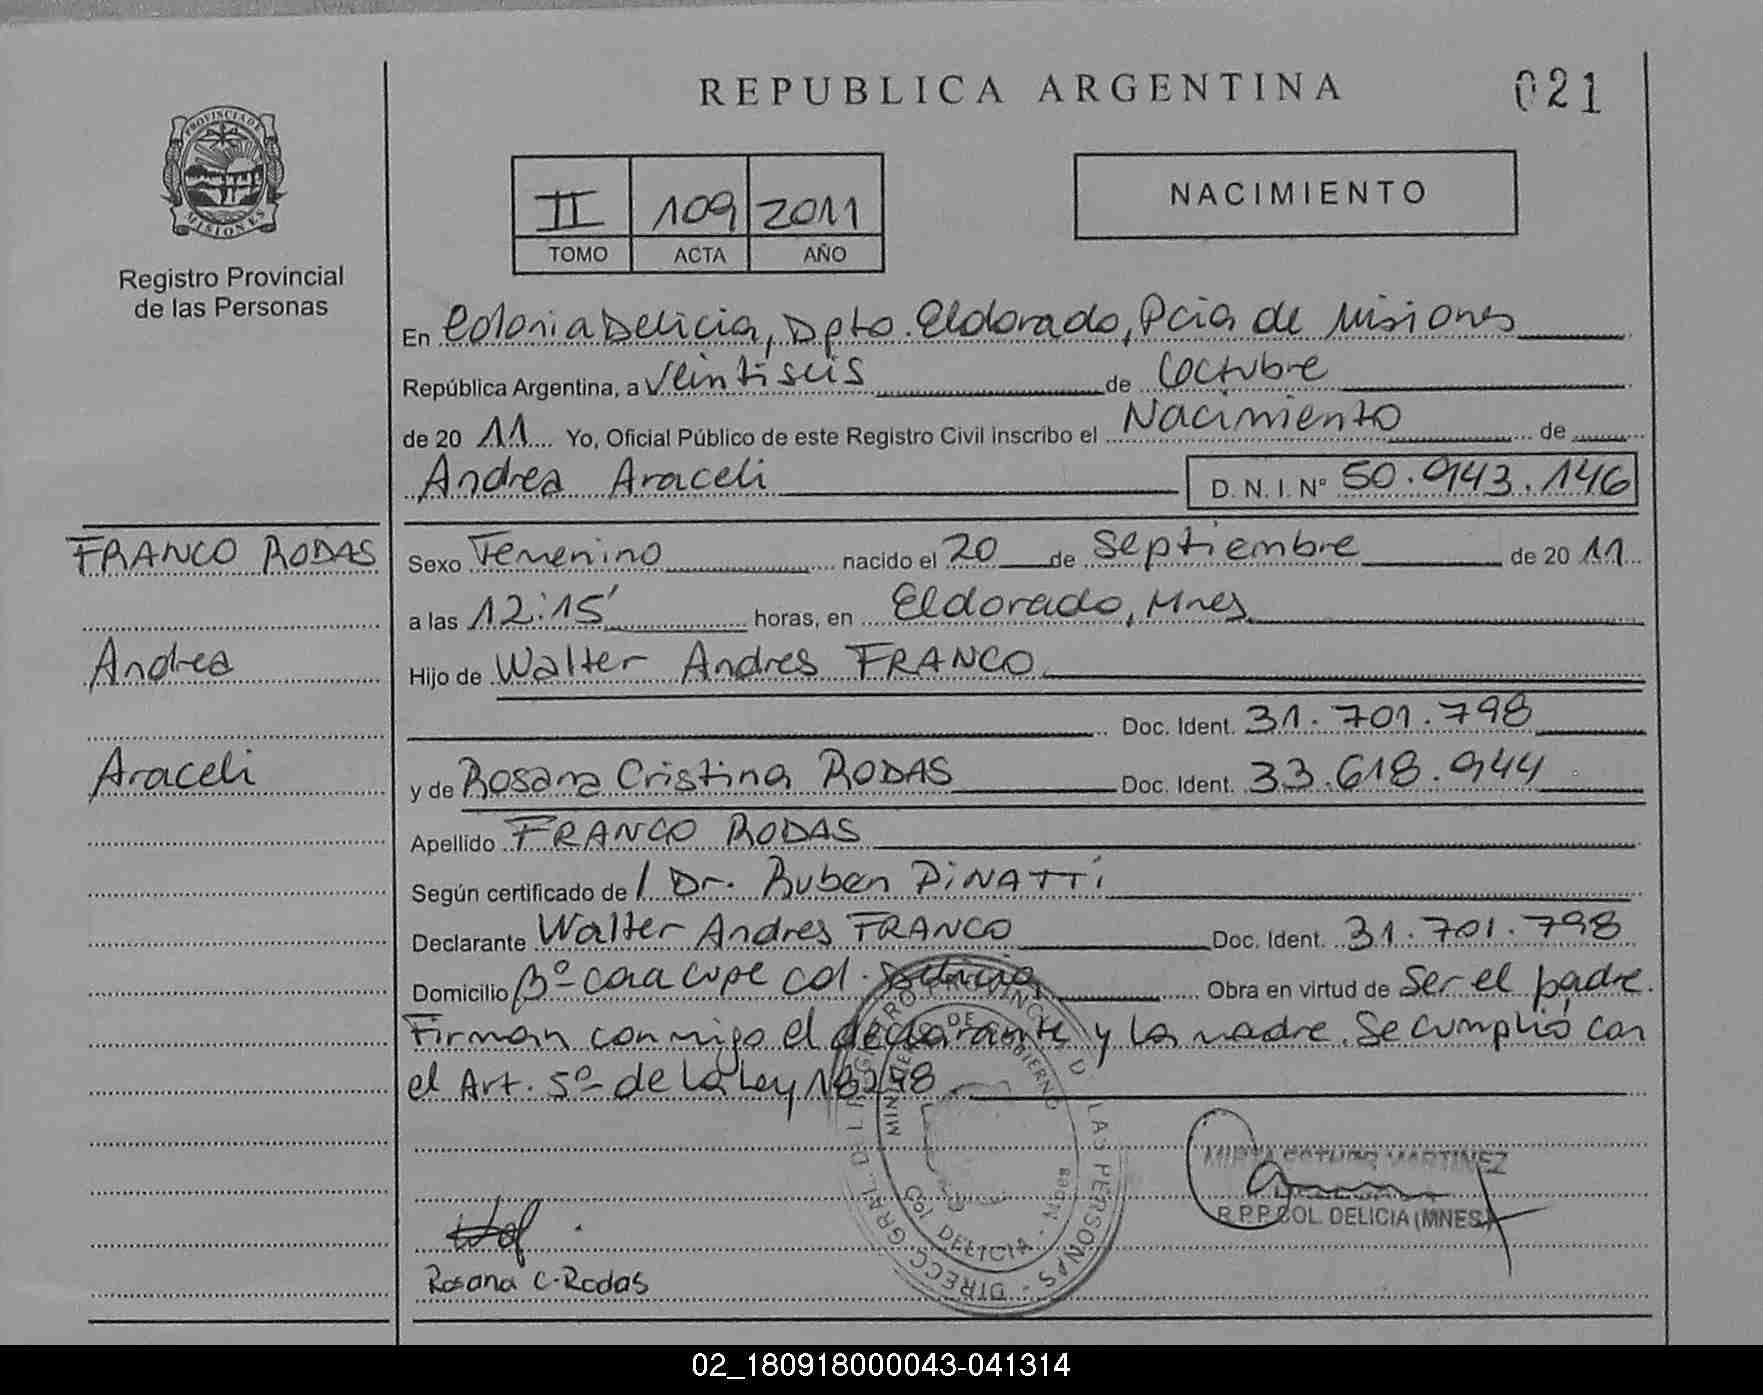 REPUBLICA ARGENTINA
021
PROVINCIA DE
MISIONES
Registro Provincial
de las Personas
II 109 2011
TOMO ACTA AÑO
NACIMIENTO
En Colonia Delicia, Dpto. Eldorado, Pcia de Misiones
República Argentina, a Veintiseis de Octubre
de 20 11 Yo, Oficial Público de este Registro Civil inscribo el Nacimiento de
Andrea Araceli D. N. I. N° 50.943.146
FRANCO RODAS
Andrea
Araceli
Sexo Femenino nacido el 20 de Septiembre de 20 11
a las 12:15' horas, en Eldorado, Mnes
Hijo de Walter Andres FRANCO
Doc. Ident. 31.701.798
y de Rosana Cristina RODAS Doc. Ident. 33.618.944
Apellido FRANCO RODAS
Según certificado de / Dr. Ruben PINATTI
Declarante Walter Andres FRANCO Doc. Ident. 31.701.798
Domicilio Bº Caacupe Col. Delicia Obra en virtud de Ser el padre.
Firman conmigo el declarante y la madre. Se cumplió con
el Art. 5º de la Ley 18248
MARTINEZ
R.P.P. COL. DELICIA (MNES)
DIRECC. GRAL. DEL REGISTRO PROVINCIAL D LAS PERSONAS
MINISTERIO DE GOBIERNO
COL DELICIA - Mnes
Rosana C. Rodas
02_180918000043-041314